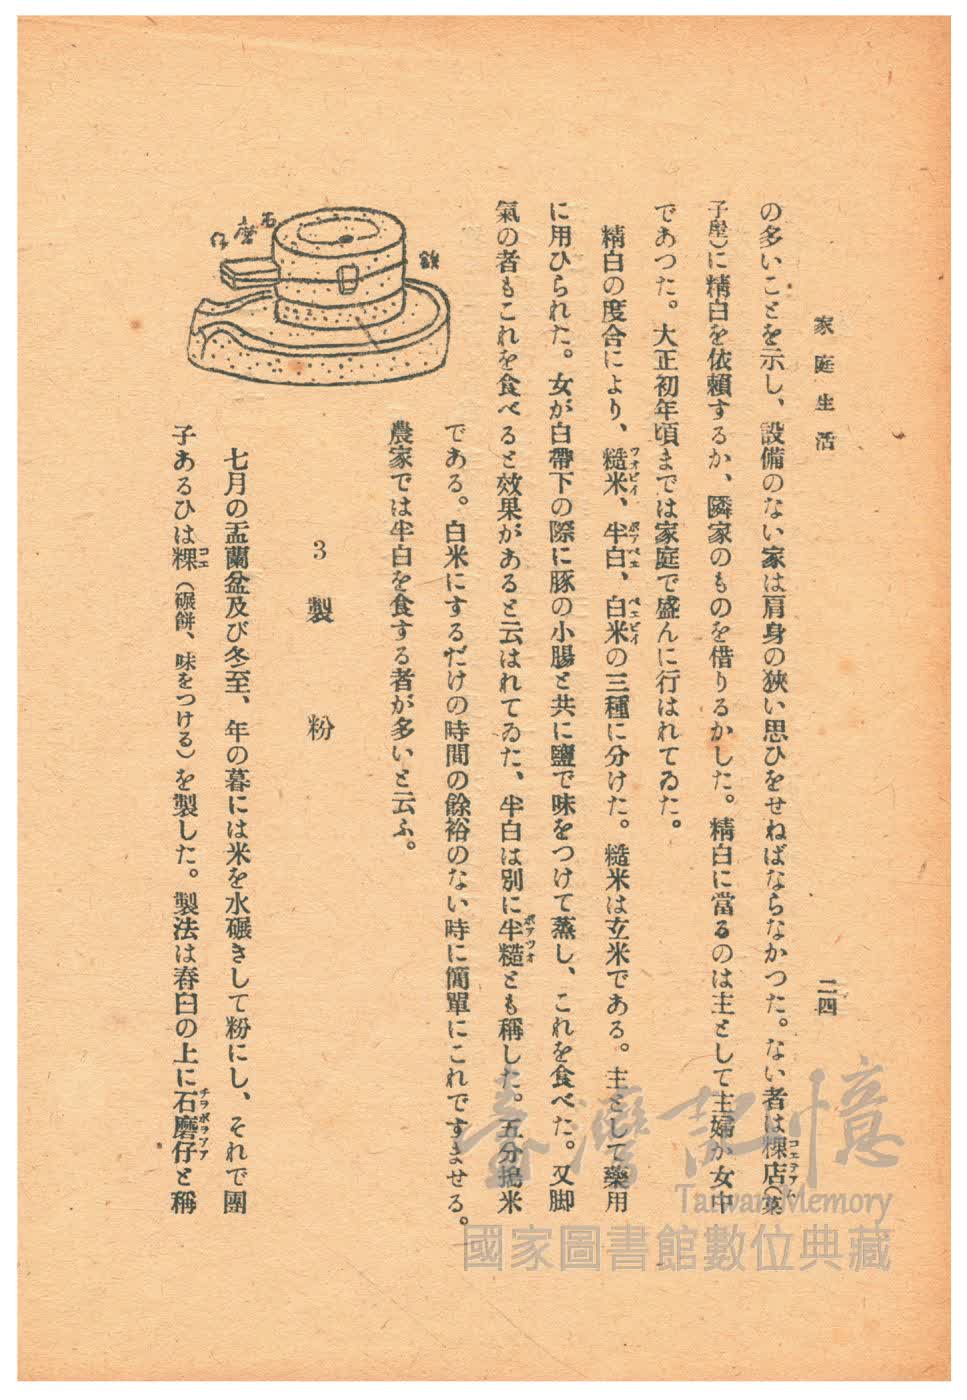 家庭生活
二四
の多いことを示し、設備のない家は肩身の狹い思ひをせねばならなかつた。ない者は粿店(菓
子屋)に精白を依賴するか、隣家のものを借りるかした。精白に當るのは主として主婦か女中
であつた。大正初年頃までは家庭で盛んに行はれてゐた。
精白の度合により、糙米、半白、白米の三種に分けた。糙米は玄米である。主として藥用
に用ひられた。女が白帶下の際に豚の小腸と共に鹽で味をつけて蒸し、これを食べた。又脚
氣の者もこれを食べると效果があると云はれてゐた、半白は別に半糙とも稱した。五分搗米
である。白米にするだけの時間の餘裕のない時に簡單にこれですませる。
農家では半白を食する者が多いと云ふ。
石磨仔
3 製粉
七月の盂蘭盆及び冬至、年の暮には米を水碾きして粉にし、それで團
子あるひは粿(碾餅、味をつける)を製した。製法は舂臼の上に石磨仔と稱
臺灣記憶
Taiwan Memory
國家圖書館數位典藏